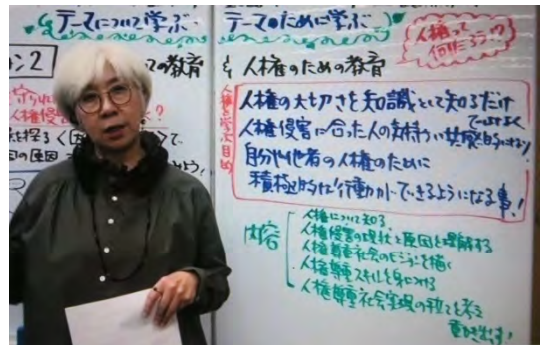 テーマについて学ぶ
ョン2
ての教育
人権侵害
テーマのために学ぶ
人権って
何だろう!?
& 人権のための教育
人権の学習目的
人権の大切さを知識として知るだけ
ではなく
人権侵害に合った人の気持ちに共感的になり
自分や他者の人権のために
積極的な行動ができるようになる事!
内容
人権について知る
人権侵害の現状と原因を理解する
人権尊重社会のビジョンを描く
人権尊重スキルを身につける
人権尊重社会実現の手立てを考え
動き出す!